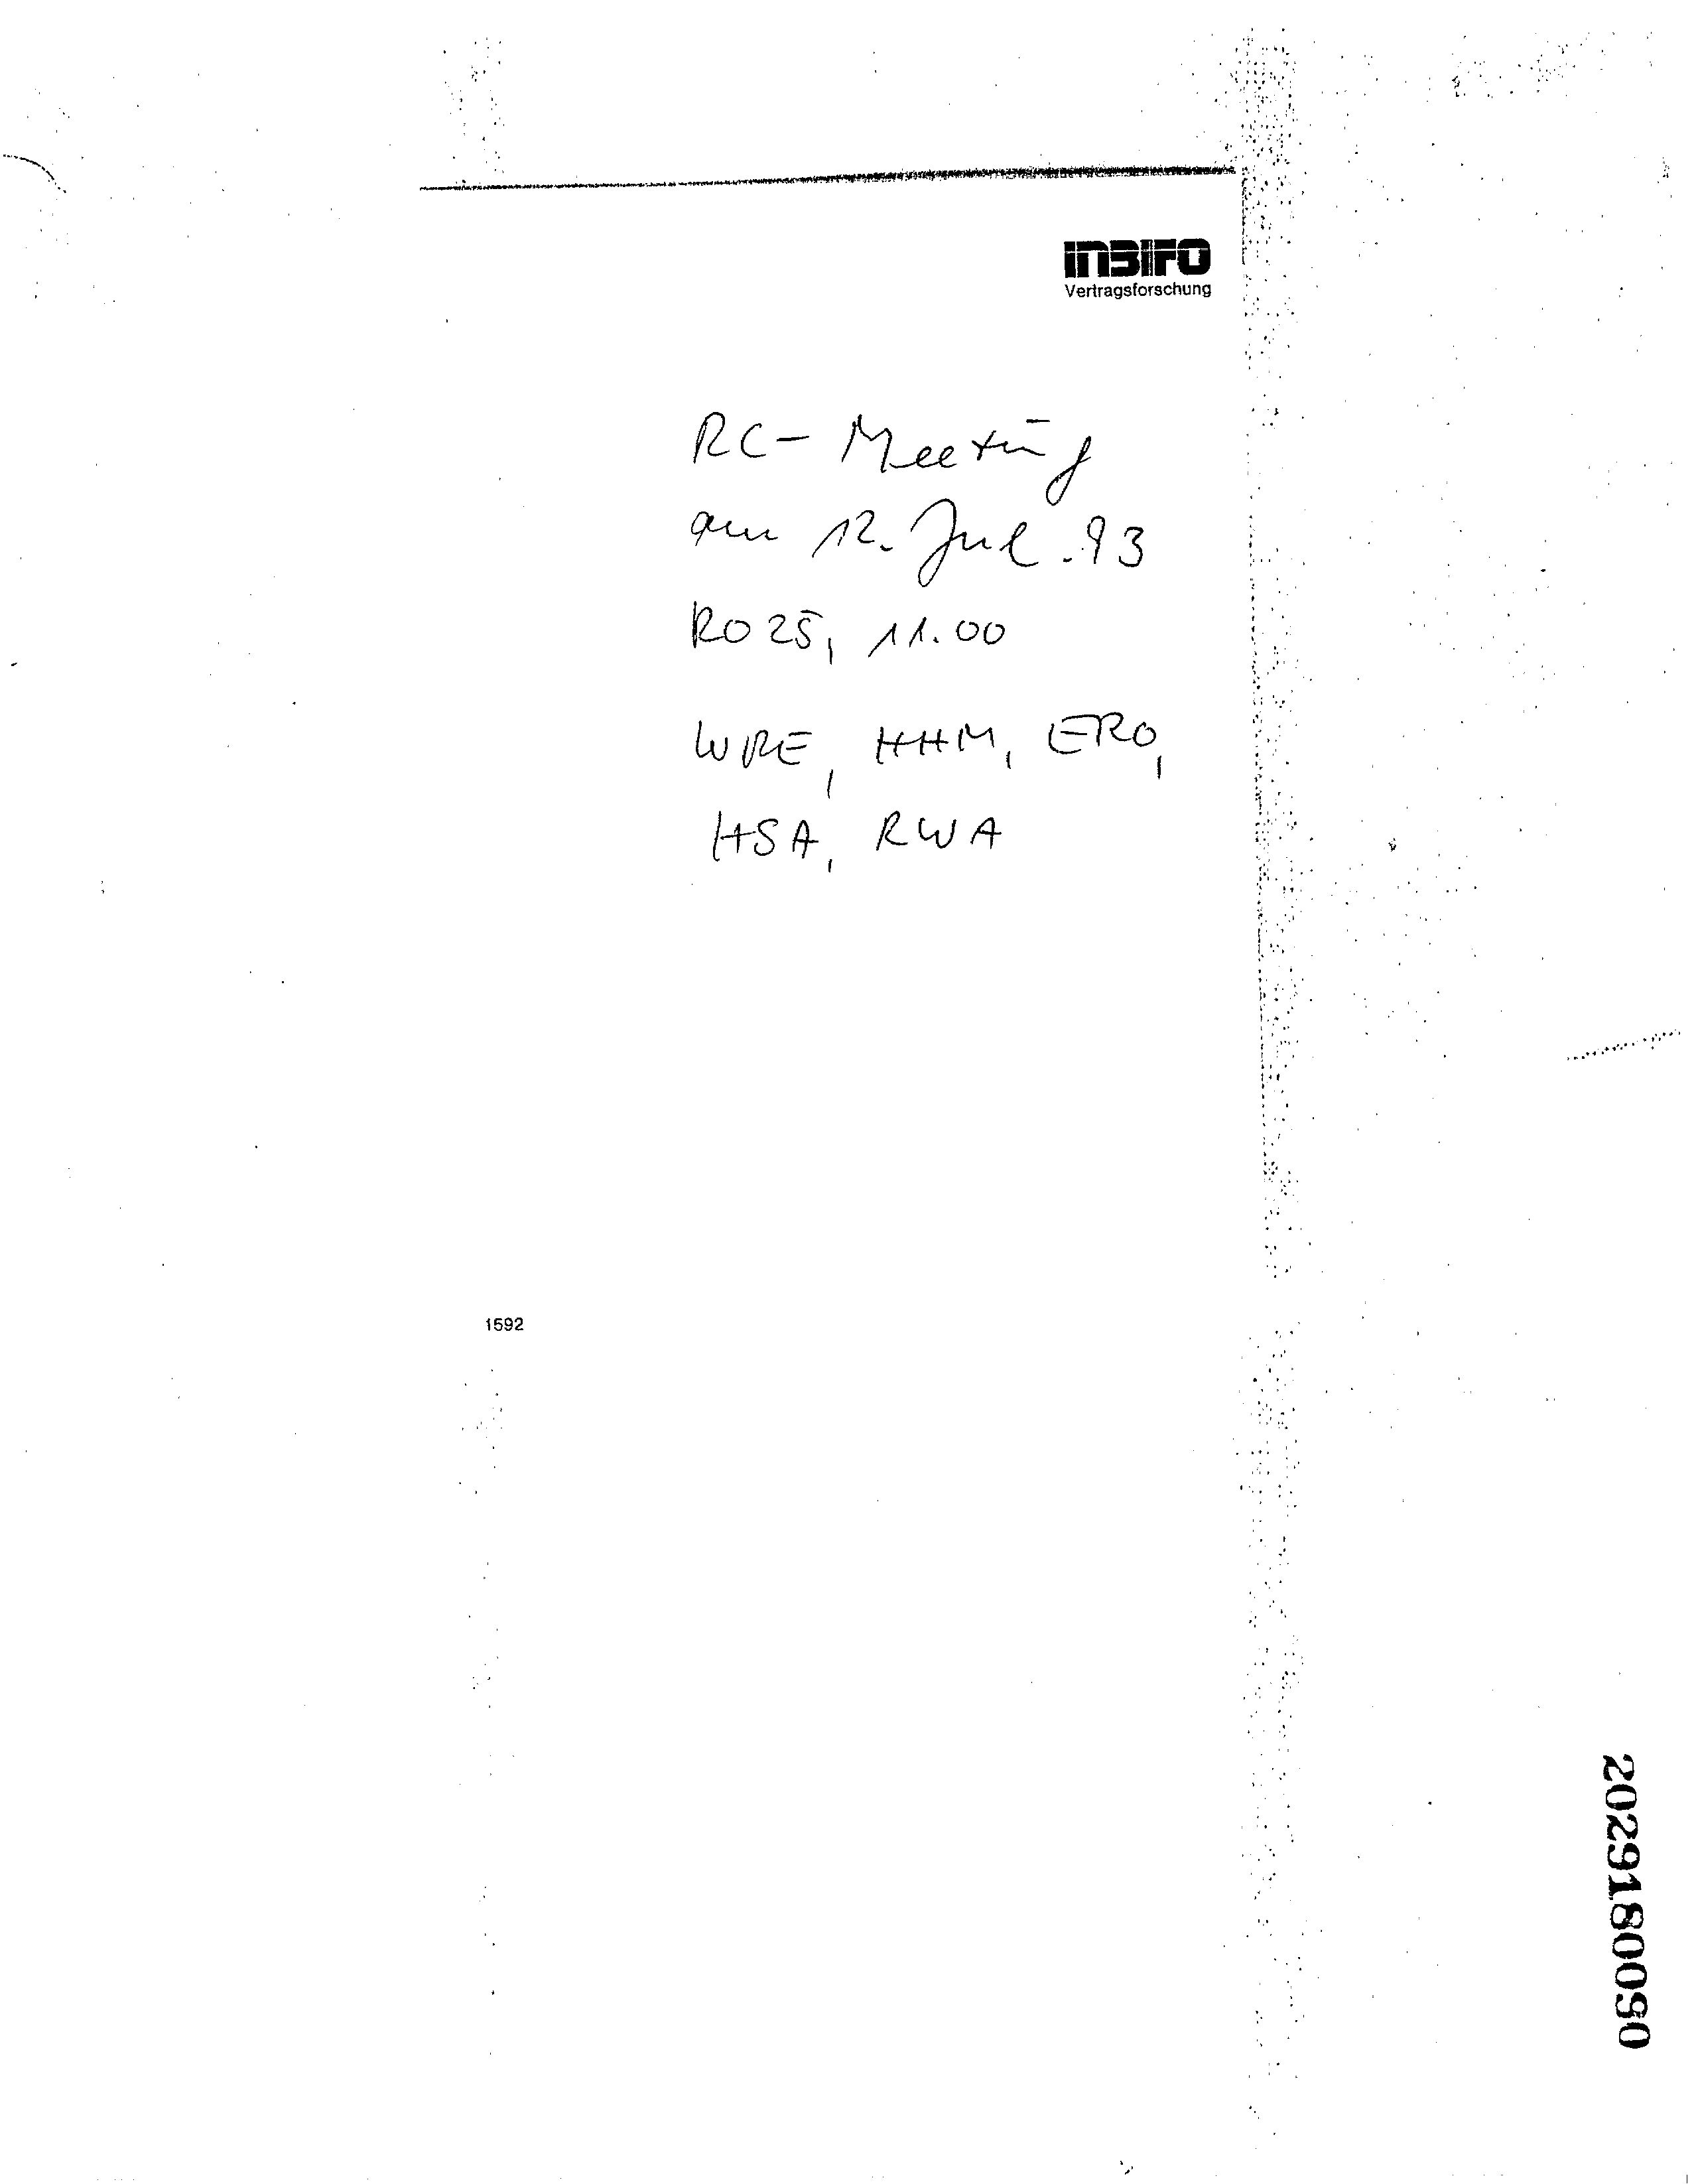 INBIFO
Vertragsforschung
RC- Meeting
am 12. Jul. 93
RO25, 11.00
WRE, HHM, ERO,
HSA, RWA
1592
2029180090